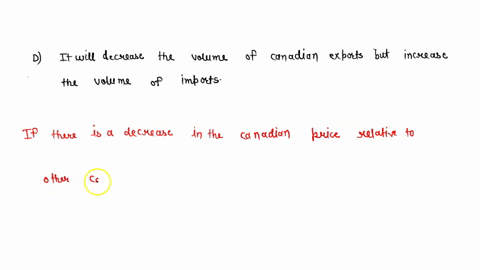 D) It will decrease the volume of canadian exports but increase
the volume of imports.
If there is a decrease in the canadian price relative to
other co